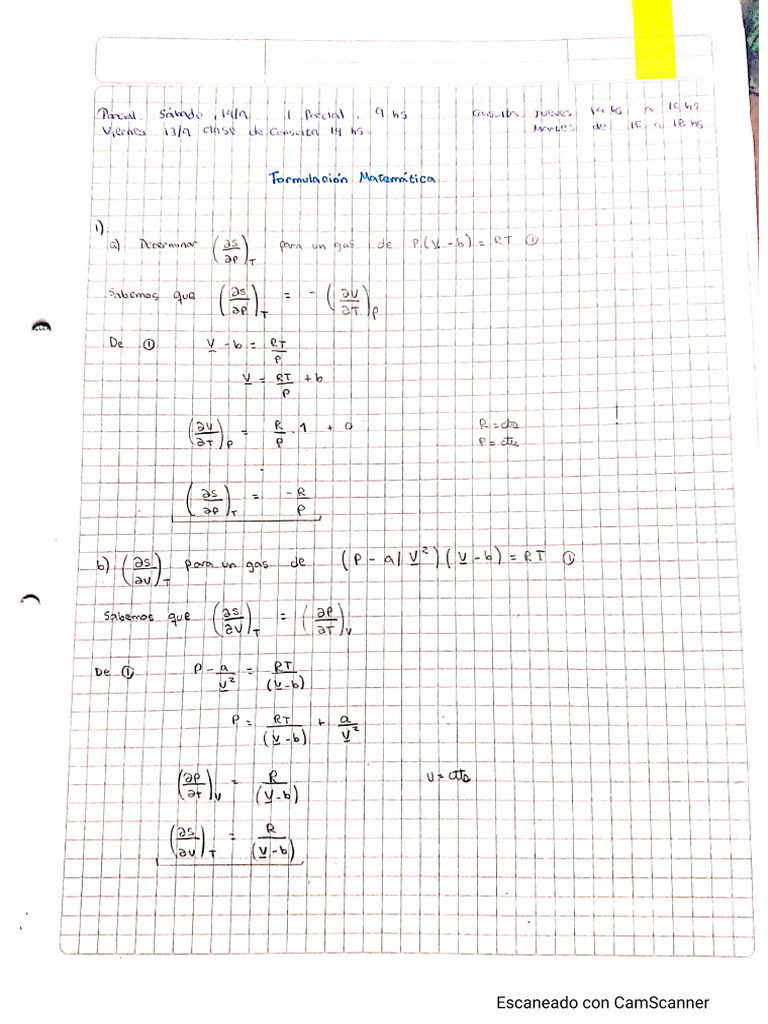 Parcial Sábado, 14/9 1 Parcial. 9 hs Consulta Jueves 14 hs a 16 hs
Viernes 13/9 clase de Consulta 14 hs. Martes de 16 a 18 hs
Formulación Matemática
1)
a) Determinar (∂S/∂P)_T para un gas de P.(V-b) = RT ①
Sabemos que (∂S/∂P)_T = - (∂V/∂T)_P
De ① V - b = RT/P
V = RT/P + b
(∂V/∂T)_P = R/P . 1 + 0 R = cte
P = cte
(∂S/∂P)_T = -R/P
b) (∂S/∂V)_T para un gas de (P - a/V²)(V - b) = RT ①
Sabemos que (∂S/∂V)_T = (∂P/∂T)_V
De ① P - a/V² = RT/(V-b)
P = RT/(V-b) + a/V²
(∂P/∂t)_V = R/(V-b) V = cte
(∂S/∂V)_T = R/(V-b)
Escaneado con CamScanner